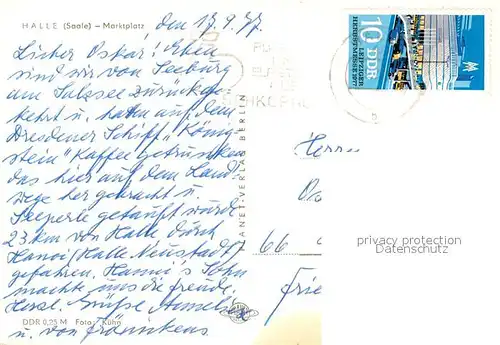 HALLE (Saale) – Marktplatz
den 17.9.77
Lieber Oskar! Eben
sind wir von Seeburg
am Salzsee zurückge-
kehrt u. haben auf dem
Dresdener Schiff „König-
stein" Kaffee getrunken
das hier auf dem Land-
wege her gebracht u.
Seeperle getauft wurde.
23 km von Halle durch
Hanoi/Halle Neustadt
gefahren. Hanni's Sohn
machte uns die Freude.
Herzl. Grüße
u. von
DDR 0,25 M Foto: Kühn
PLANET-VERLAG BERLIN
10 DDR
LEIPZIGER
HERBSTMESSE 1977
Herrn
66
Frie
privacy protection
Datenschutz